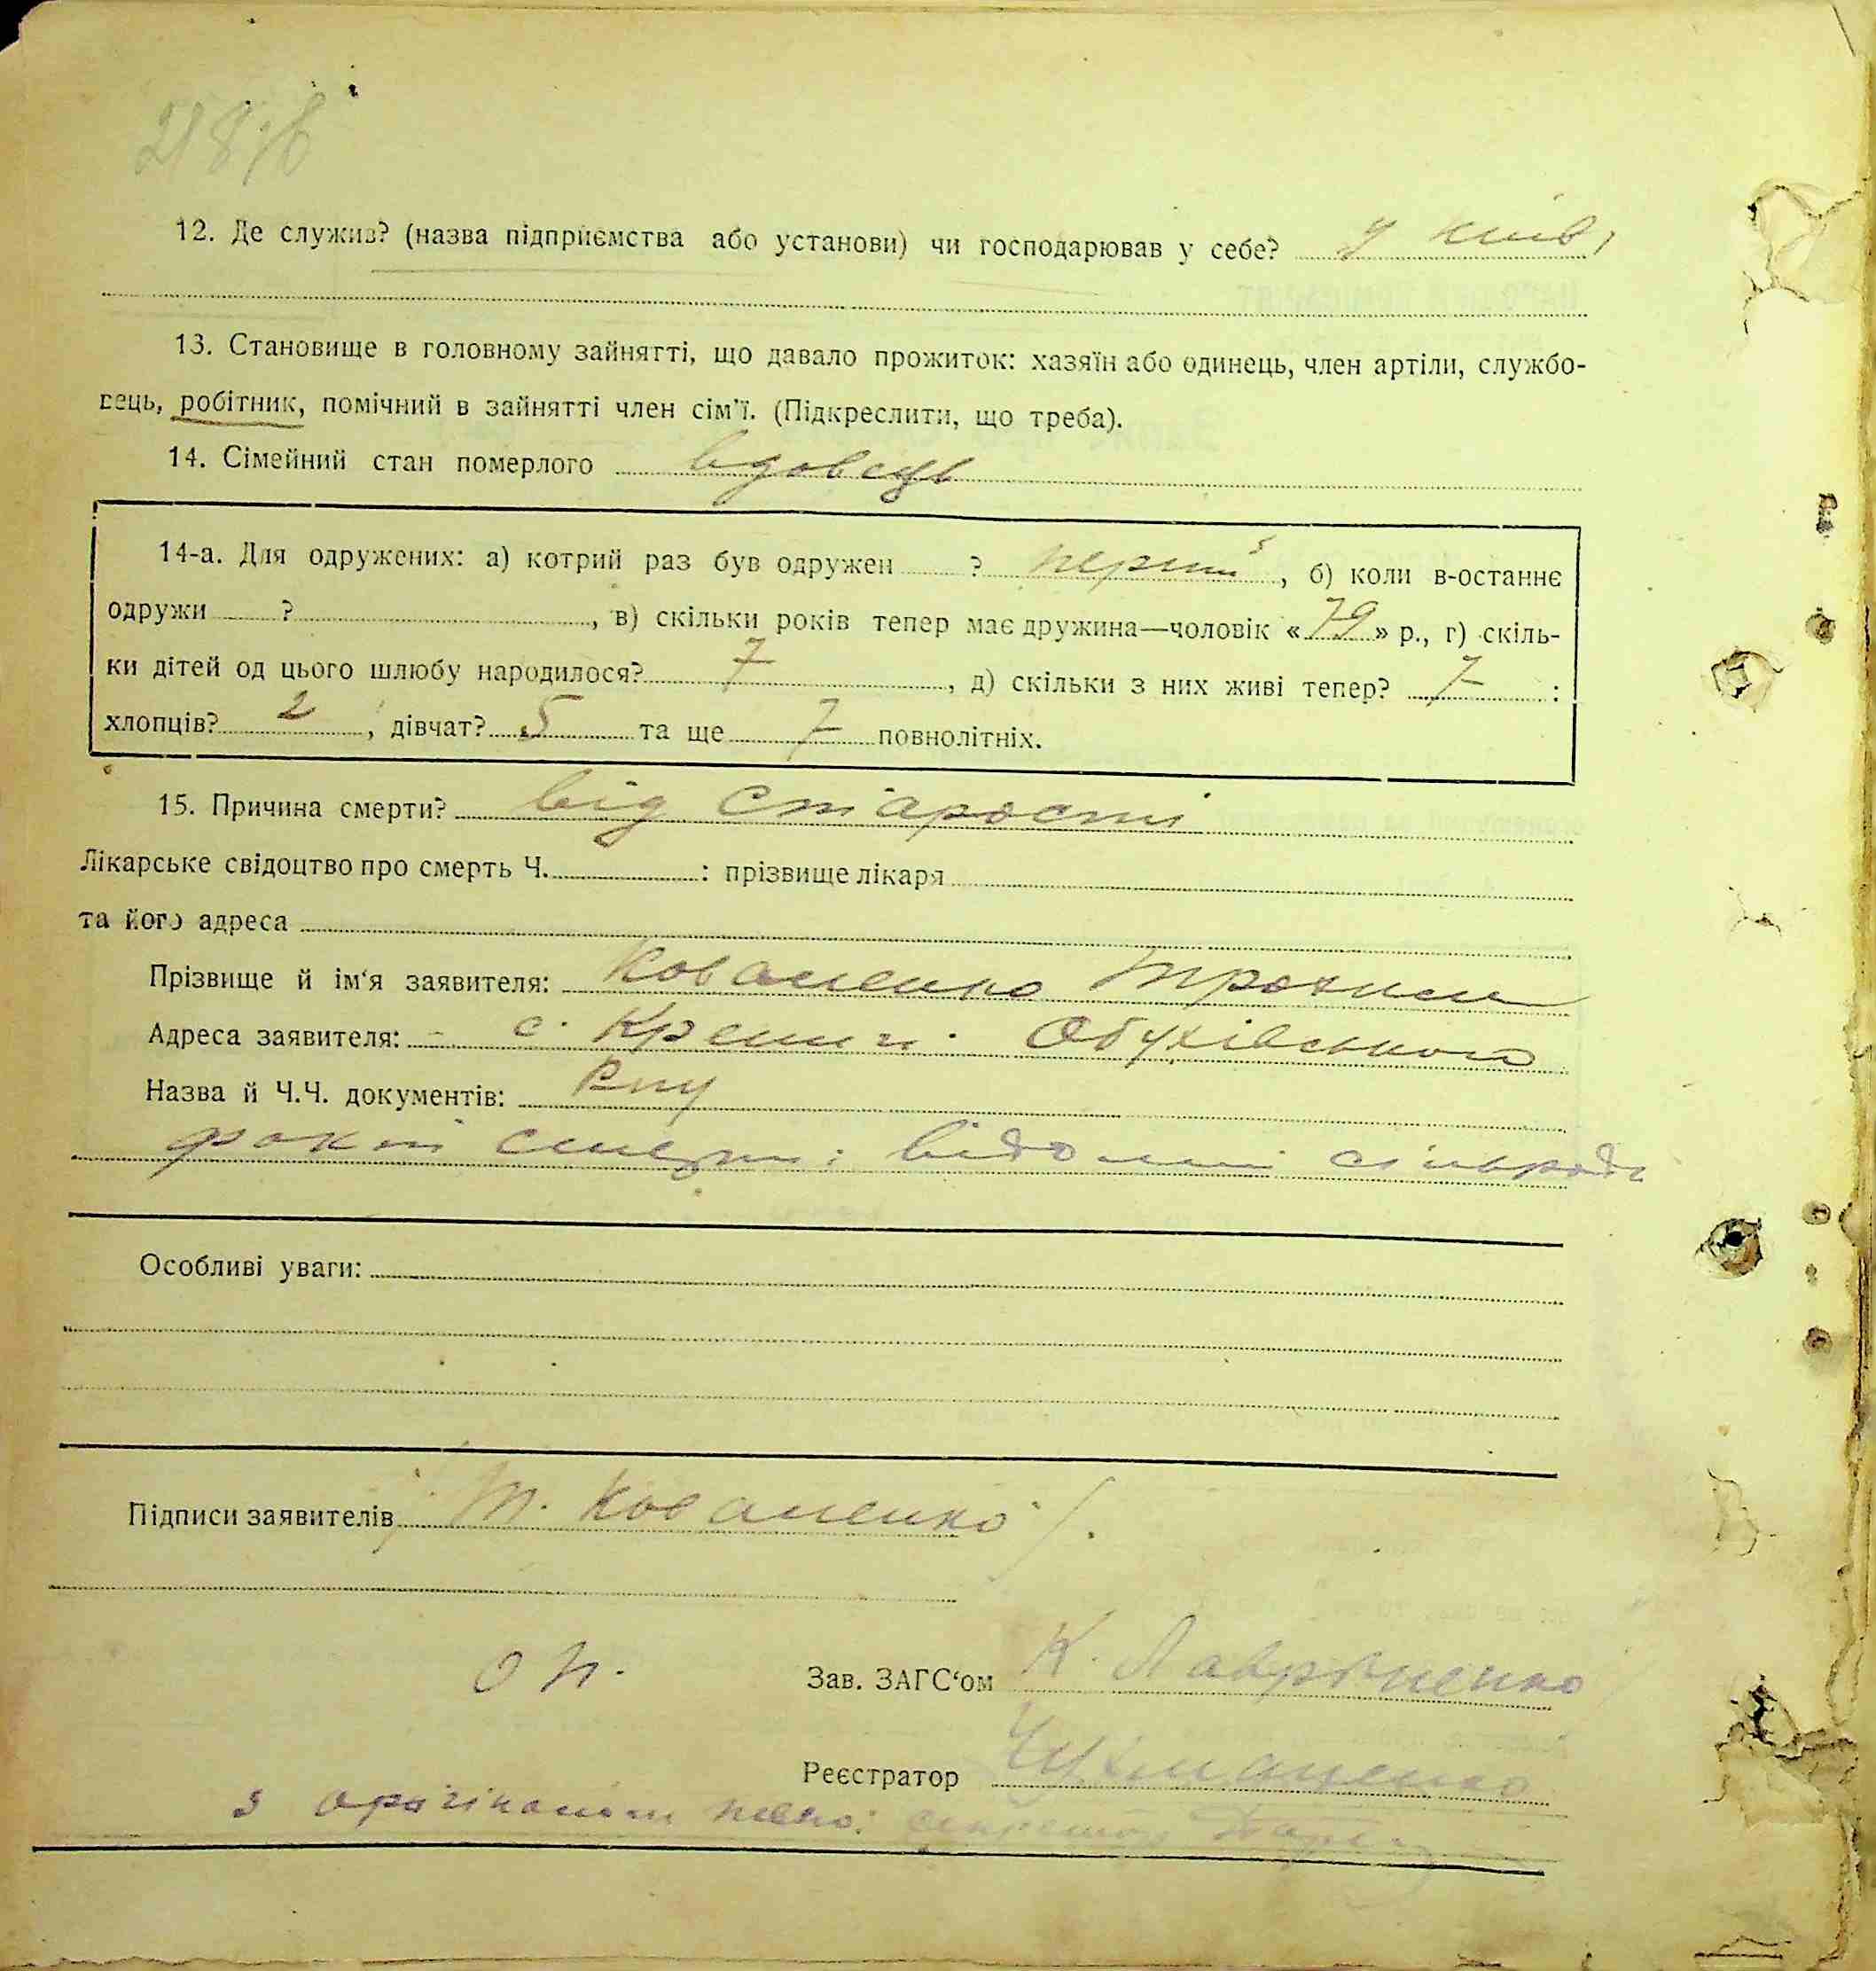 218/б
12. Де служив? (назва підприємства або установи) чи господарював у себе? у київі
13. Становище в головному зайнятті, що давало прожиток: хазяїн або одинець, член артіли, службо-
вець, робітник, помічний в зайнятті член сім'ї. (Підкреслити, що треба).
14. Сімейний стан померлого вдовець
14-а. Для одружених: а) котрий раз був одружен ? перший, б) коли в-останнє
одружи ? , в) скільки років тепер має дружина—чоловік «79» р., г) скіль-
ки дітей од цього шлюбу народилося? 7 , д) скільки з них живі тепер? 7 :
хлопців? 2 , дівчат? 5 та ще 7 повнолітніх.
15. Причина смерти? від старости
Лікарське свідоцтво про смерть Ч. : прізвище лікаря
та його адреса
Прізвище й ім'я заявителя: Коваленко Трохим
Адреса заявителя: с. Обухівського
Назва й Ч.Ч. документів: Рпу
факт смерти: відомий сільраді
Особливі уваги:
Підписи заявителів Т. Коваленко /.
Оп.
Зав. ЗАГС'ом К. Лавріненко
Реєстратор
з оригіналом вірно: секретар